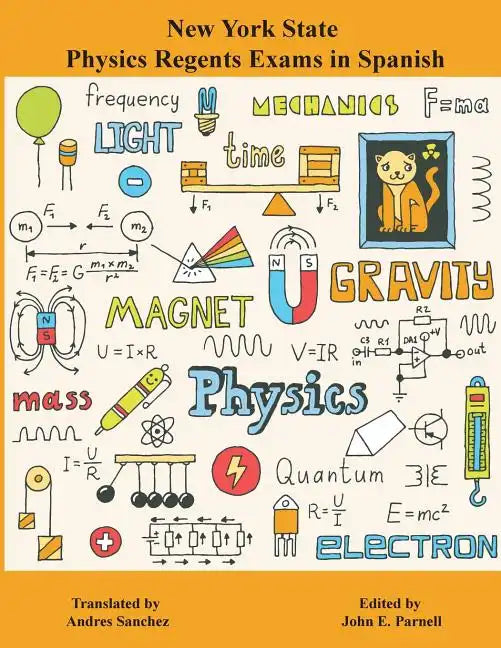 New York State
Physics Regents Exams in Spanish
frequency
MECHANICS
F=ma
LIGHT
time
F₁
F₂
F₁
F₂
m₁
m₂
r
F₁=F₂=G m₁×m₂/r²
N
S
GRAVITY
N
S
MAGNET
R2
C3
R1
DA1
+V
in
out
U=I×R
V=IR
mass
Physics
I=U/R
Quantum
R=U/I
E=mc²
ELECTRON
Translated by
Andres Sanchez
Edited by
John E. Parnell